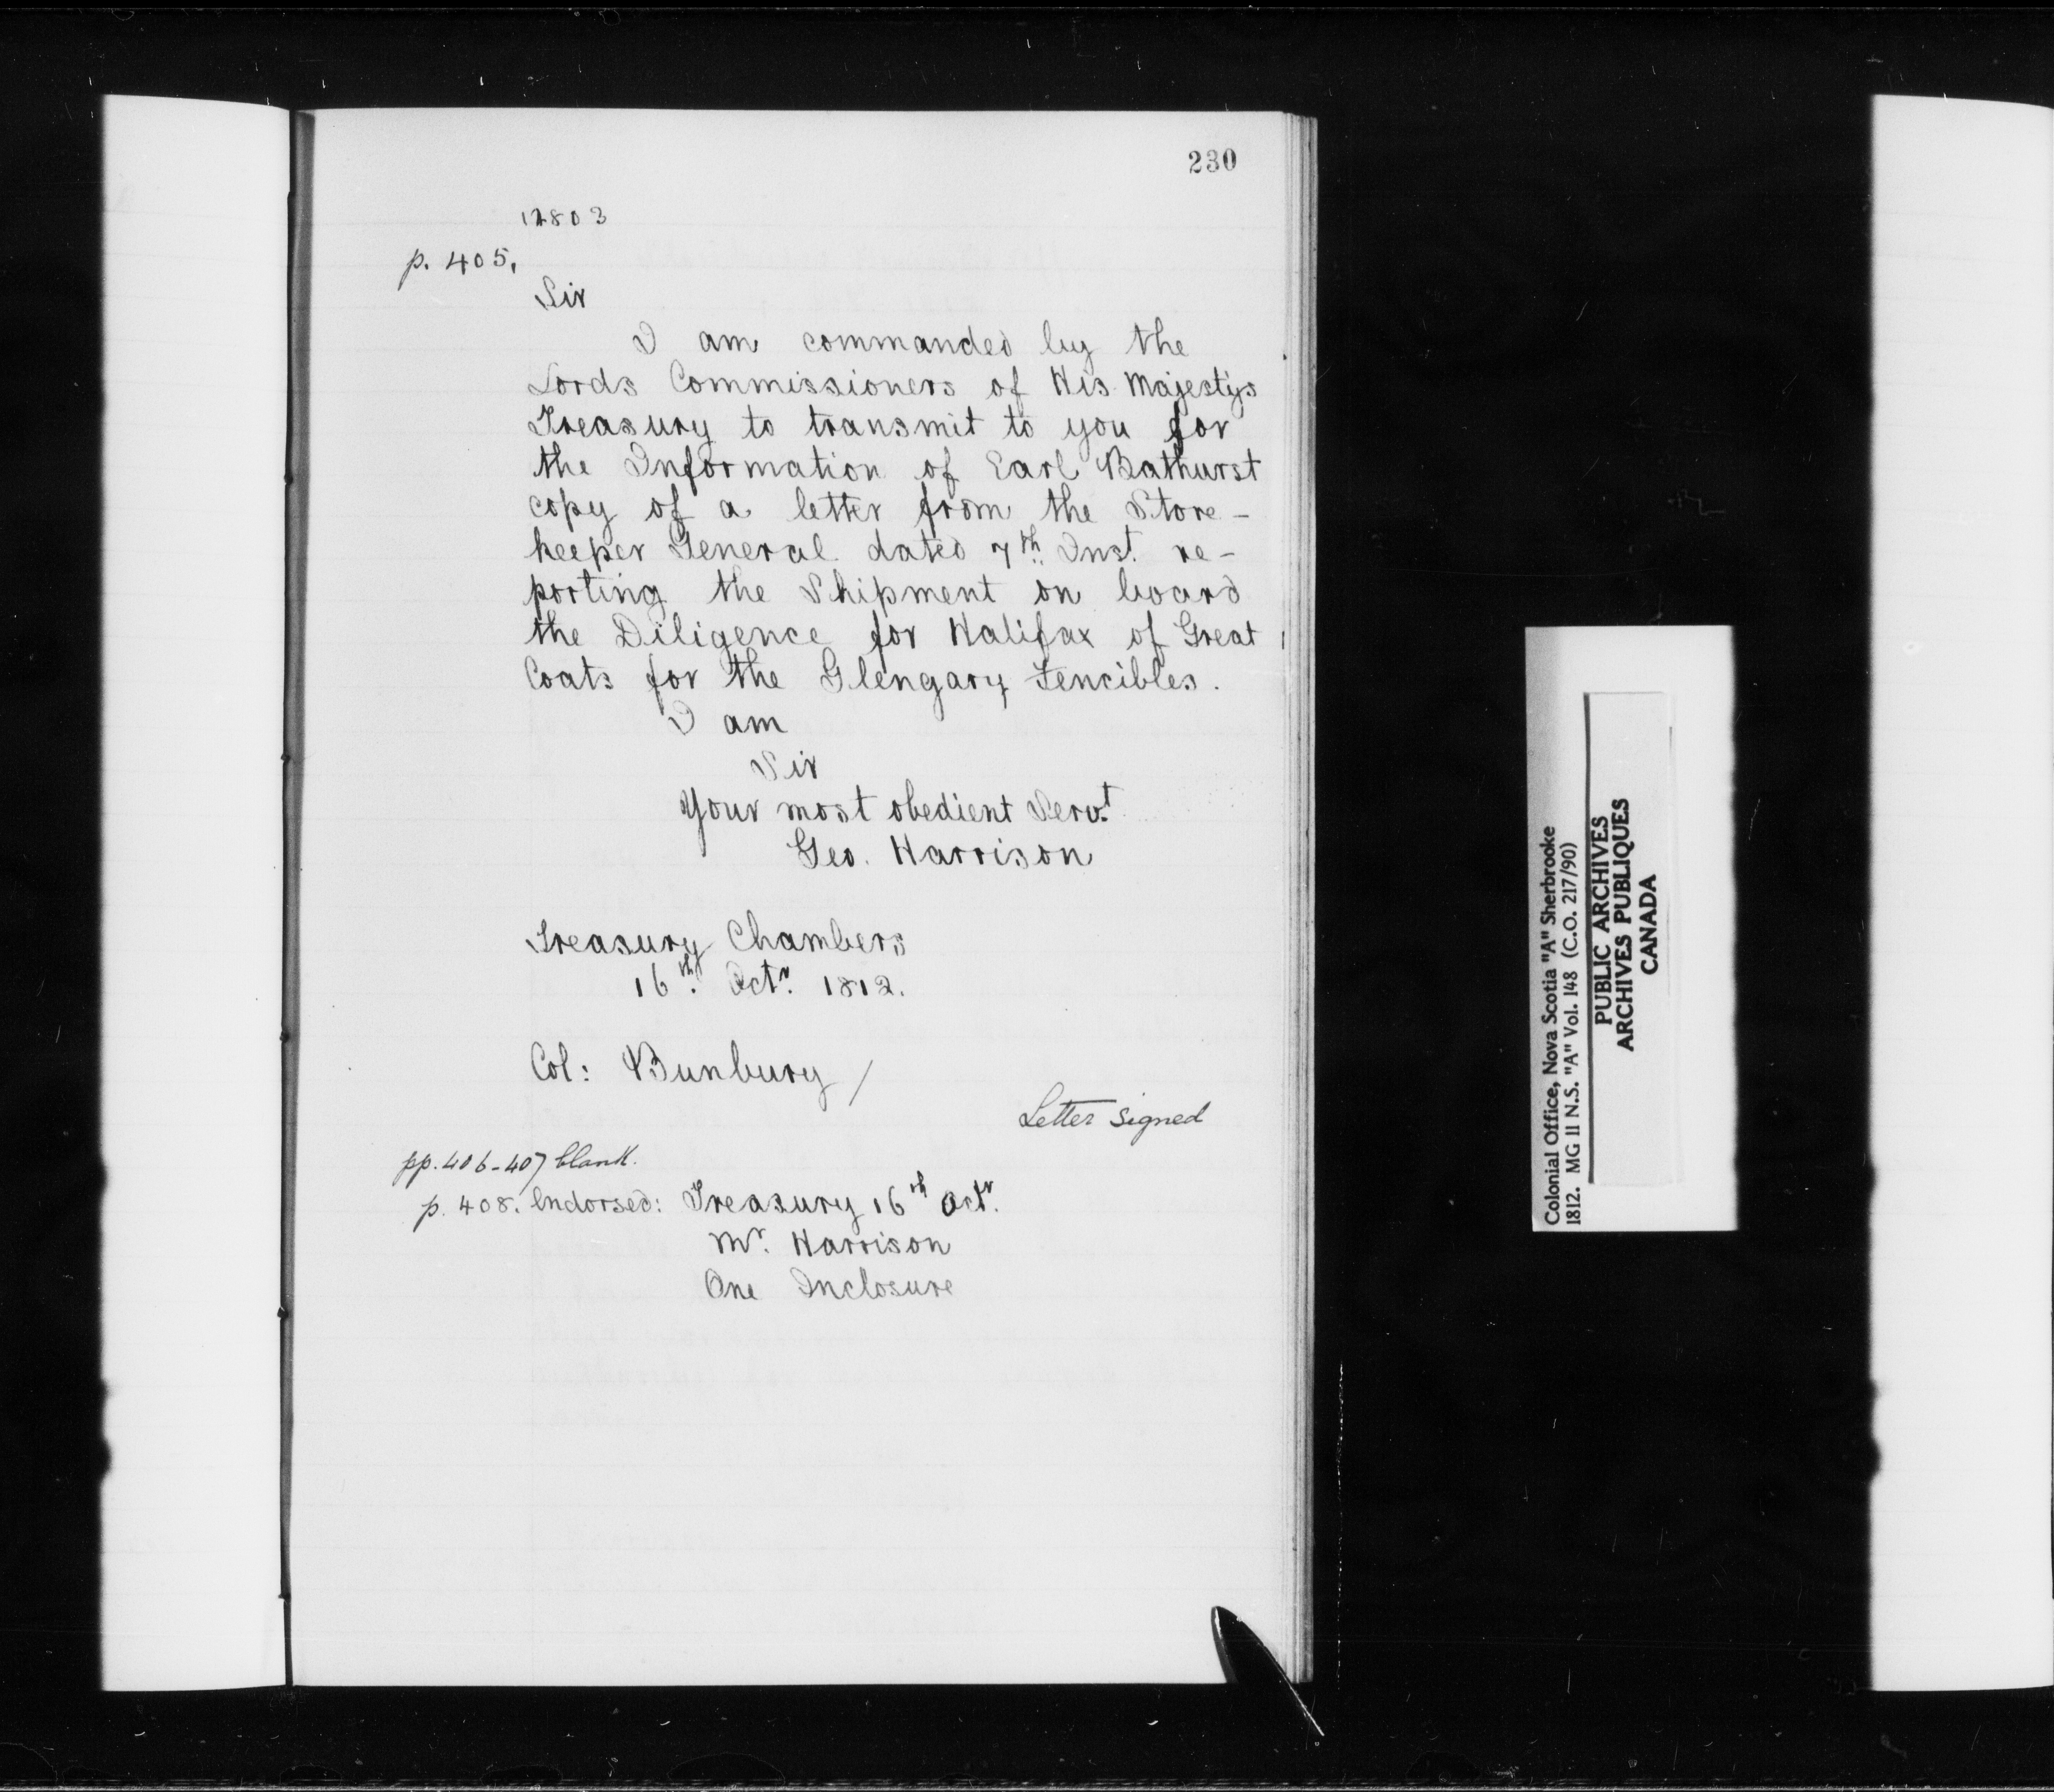 230
12803
p. 405.
Sir
I am commanded by the
Lords Commissioners of His Majestys
Treasury to transmit to you for
the Information of Earl Bathurst
copy of a letter from the Store-
keeper General dated 7th Inst. re-
porting the Shipment on board
the Diligence for Halifax of Great
Coats for the Glengary Fencibles.
I am
Sir
Your most obedient Servt
Geo. Harrison
Treasury Chambers
16th Octr. 1812.
Col: Bunbury /
Letter signed
pp. 406-407 blank.
p. 408. Endorsed: Treasury 16th Octr.
Mr. Harrison
One Inclosure
Colonial Office, Nova Scotia "A" Sherbrooke
1812. MG 11 N.S. "A" Vol. 148 (C.O. 217/90)
PUBLIC ARCHIVES
ARCHIVES PUBLIQUES
CANADA